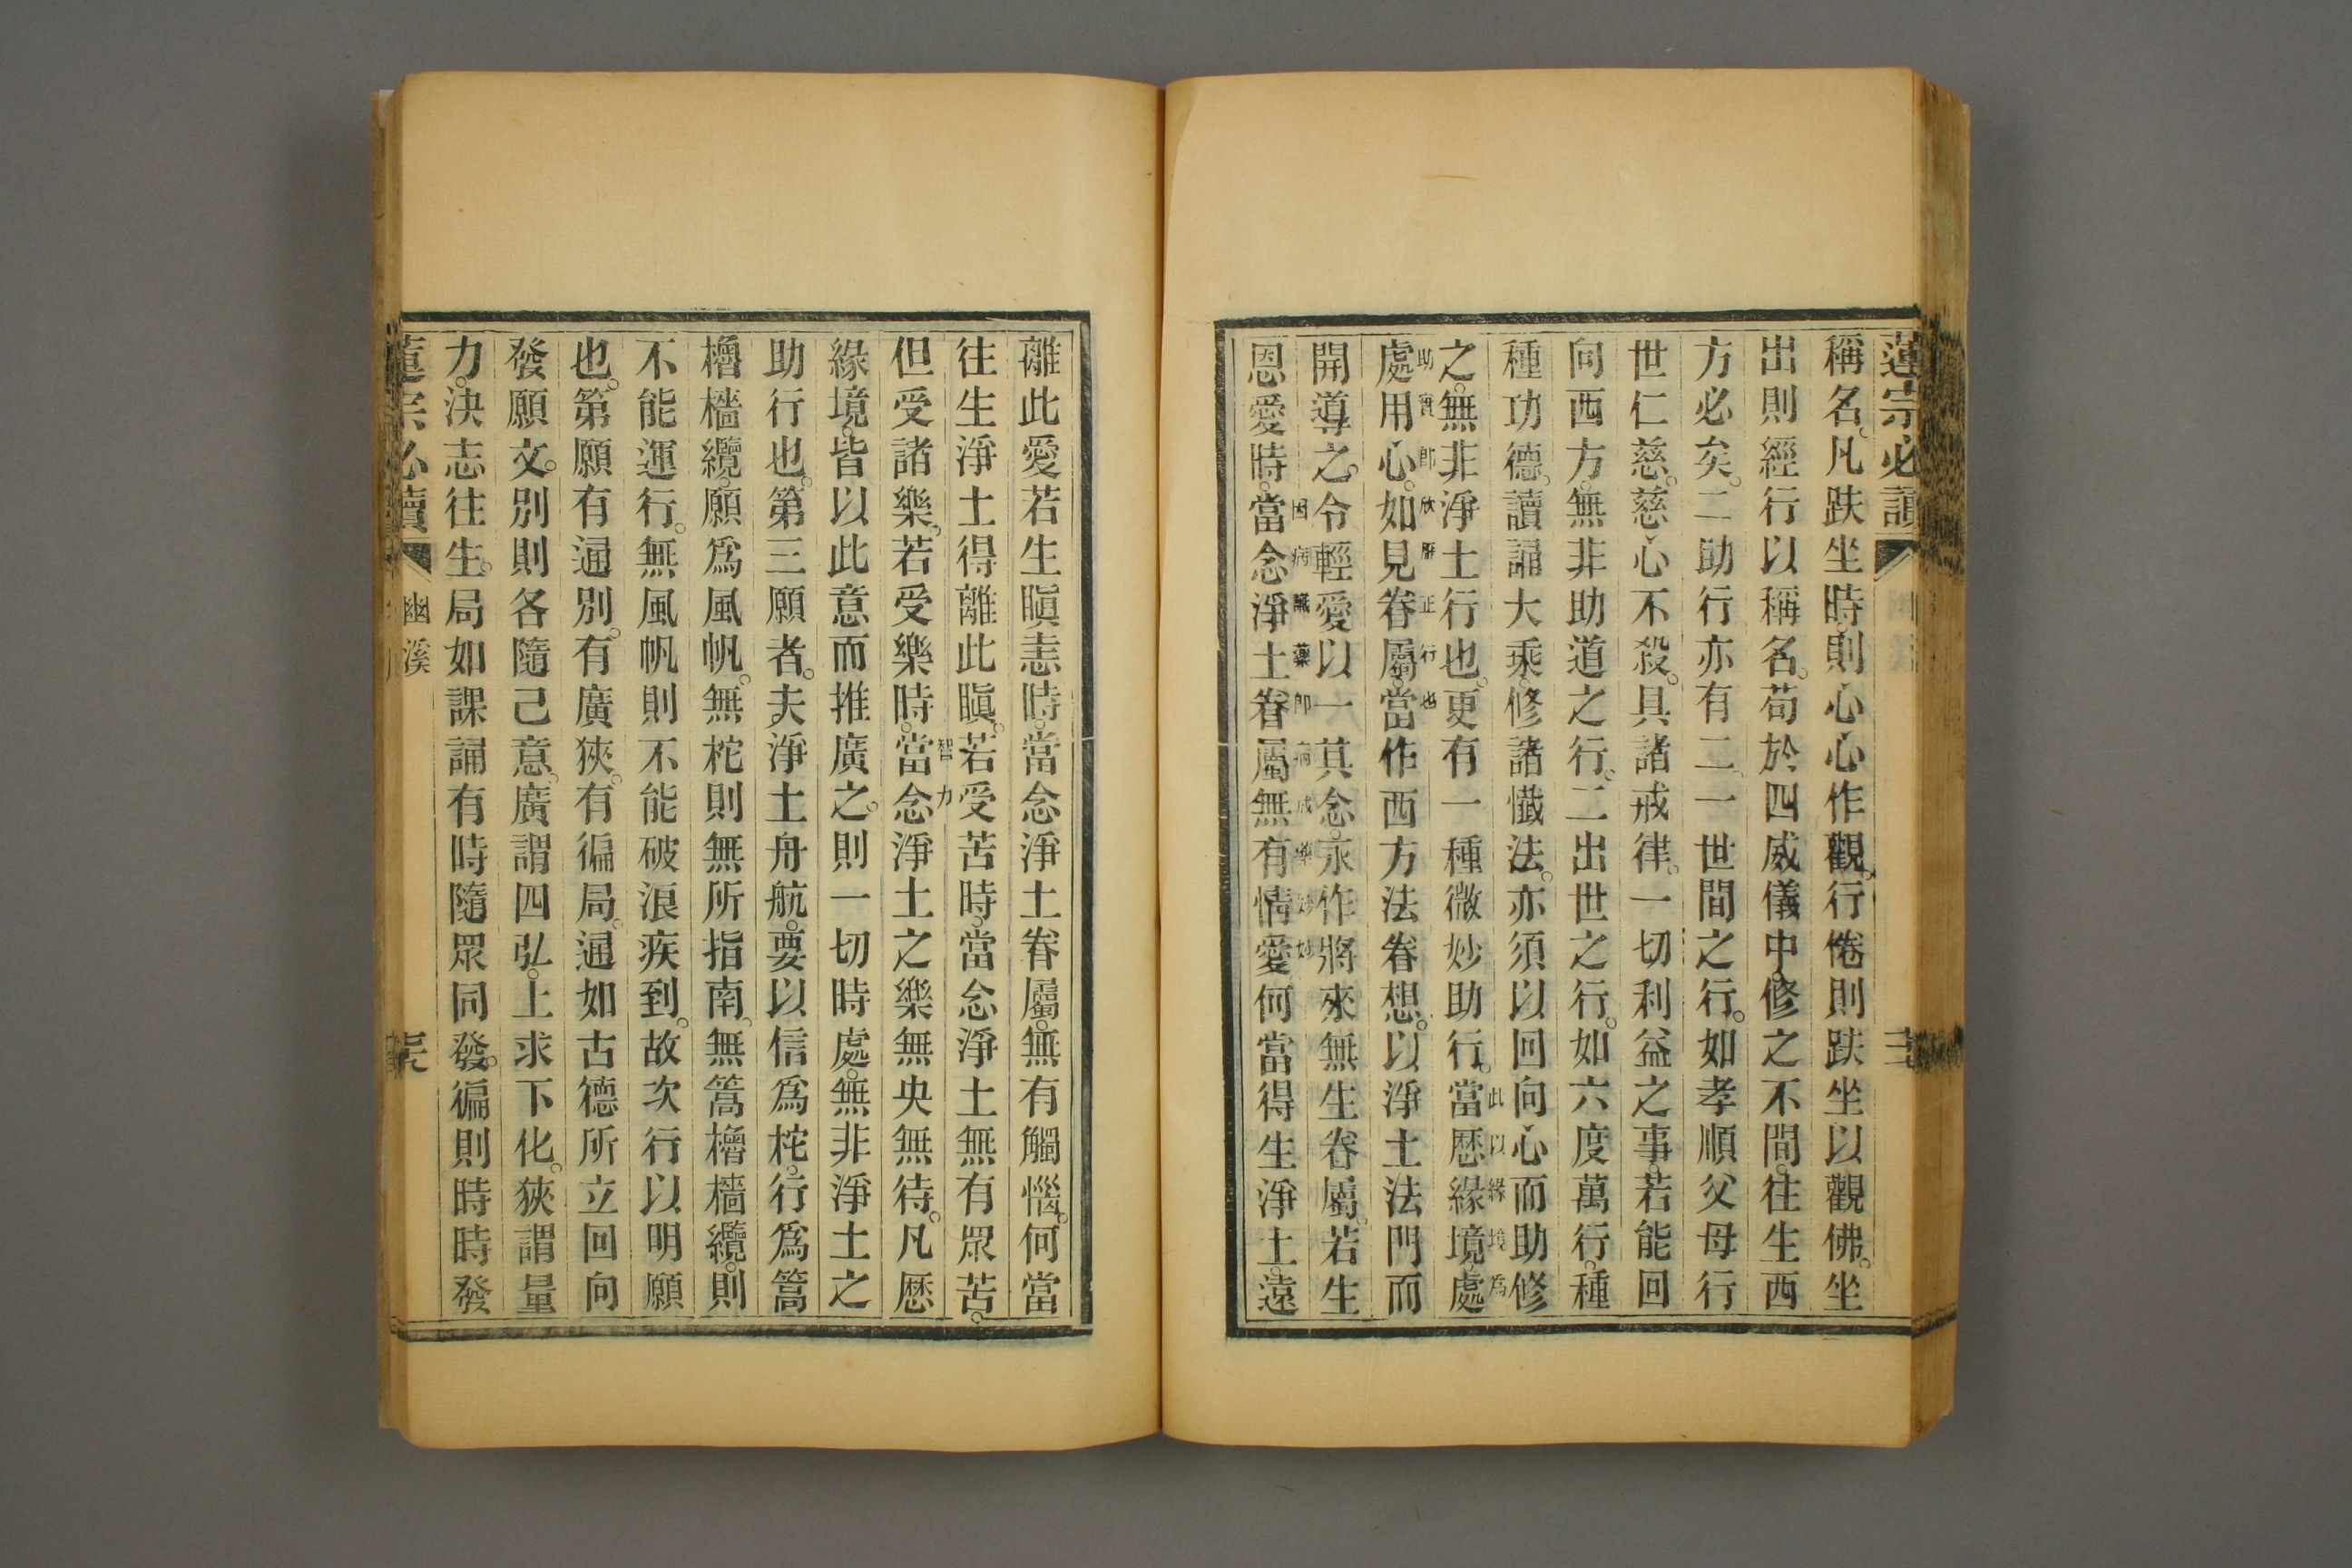 蓮宗必讀
稱名。凡趺坐時。則心心作觀。行倦則趺坐以觀佛。坐
出則經行以稱名。苟於四威儀中。修之不間。往生西
方必矣。二助行亦有二。一世間之行。如孝順父母行
世仁慈。慈心不殺。具諸戒律。一切利益之事。若能回
向西方。無非助道之行。二出世之行。如六度萬行。種
種功德。讀誦大乘。修諸懺法。亦須以回向心而助修
此以緣境為
之。無非淨土行也。更有一種微妙助行。當歷緣境。處
助實即欣厭正行也
處用心。如見眷屬。當作西方法眷想。以淨土法門而
開導之。令輕愛以一其念。永作將來無生眷屬。若生
因病藏藥即病成藥妙妙
恩愛時。當念淨土眷屬無有情愛。何當得生淨土。遠
離此愛若生瞋恚時。當念淨土眷屬。無有觸惱。何當
往生淨土得離此瞋。若受苦時。當念淨土無有眾苦。
智力
但受諸樂。若受樂時。當念淨土之樂無央無待。凡歷
緣境。皆以此意而推廣之。則一切時處。無非淨土之
助行也。第三願者。夫淨土舟航。要以信為柁。行為篙
櫓檣纜。願為風帆。無柁則無所指南。無篙櫓檣纜。則
不能運行。無風帆則不能破浪疾到。故次行以明願
也。第願有通別。有廣狹。有徧局。通如古德所立回向
發願文。別則各隨己意。廣謂四弘。上求下化。狹謂量
力。決志往生。局如課誦有時隨眾同發。徧則時時發
蓮宗必讀
幽溪